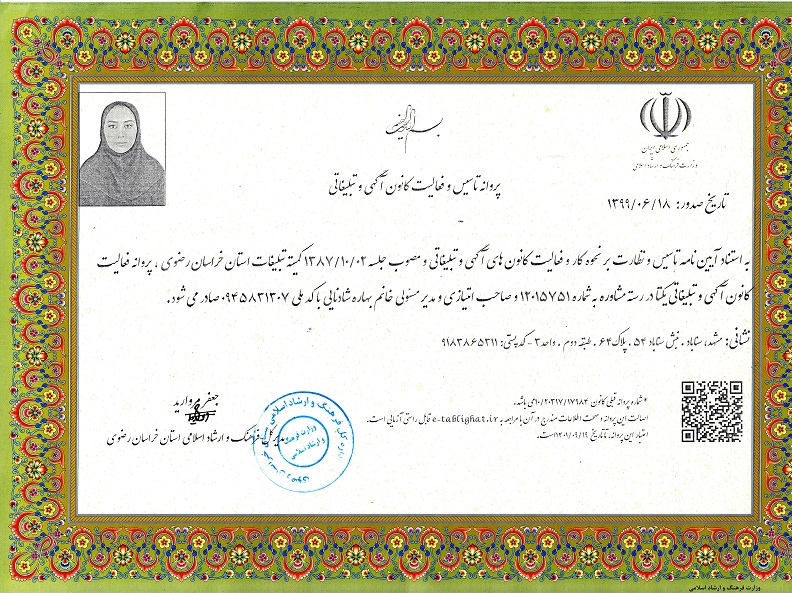 بسم الله الرحمن الرحیم
جمهوری اسلامی ایران
وزارت فرهنگ و ارشاد اسلامی
پروانه تاسیس و فعالیت کانون آگهی و تبلیغاتی
تاریخ صدور: ۱۳۹۹/۰۶/۱۸
به استناد آیین نامه تاسیس و نظارت بر نحوه کار و فعالیت کانون های آگهی و تبلیغاتی و مصوب جلسه ۱۳۸۷/۱۰/۰۲ کمیته تبلیغات استان خراسان رضوی ، پروانه فعالیت
کانون آگهی و تبلیغاتی یکتا در رسته مشاوره به شماره ۱۲۰۱۵۷۵۱ و صاحب امتیازی و مدیر مسئولی خانم بهاره شادنایی با کد ملی ۰۹۴۵۸۳۱۳۰۷ صادر می شود .
نشانی: مشهد، سناباد . نبش سناباد ۵۴ . پلاک ۶۴ . طبقه دوم . واحد ۳ - کد پستی: ۹۱۸۳۸۶۵۳۱۱
* شماره پروانه قبلی کانون ۱۰/۲۰۳۱۷/۱۷۹۸۴ می باشد.
اصالت این پروانه و صحت اطلاعات مندرج در آن با مراجعه به e-tablighat.ir قابل راستی آزمایی است.
اعتبار این پروانه، تا تاریخ ۱۴۰۱/۰۹/۱۹ است.
جعفر مروارید
مدیر کل فرهنگ و ارشاد اسلامی استان خراسان رضوی
اداره کل فرهنگ و ارشاد اسلامی خراسان رضوی
وزارت فرهنگ
و ارشاد اسلامی
وزارت فرهنگ و ارشاد اسلامی